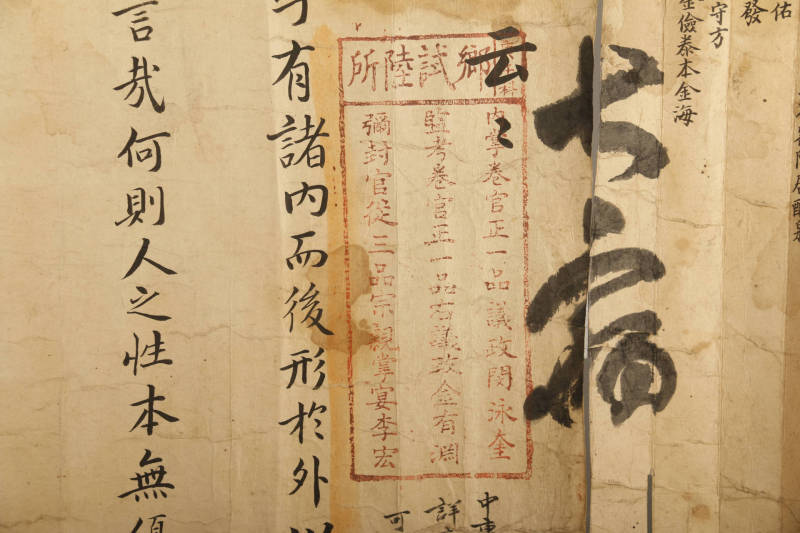 佑
發
守方
金儉泰本金海
云〻
鄕試陸所
內掌卷官正一品議政閔泳奎
監考卷官正一品右議政金有淵
彌封官從三品宗親掌宴李宏
中
詳
可
于有諸內而後形於外
言哉何則人之性本無